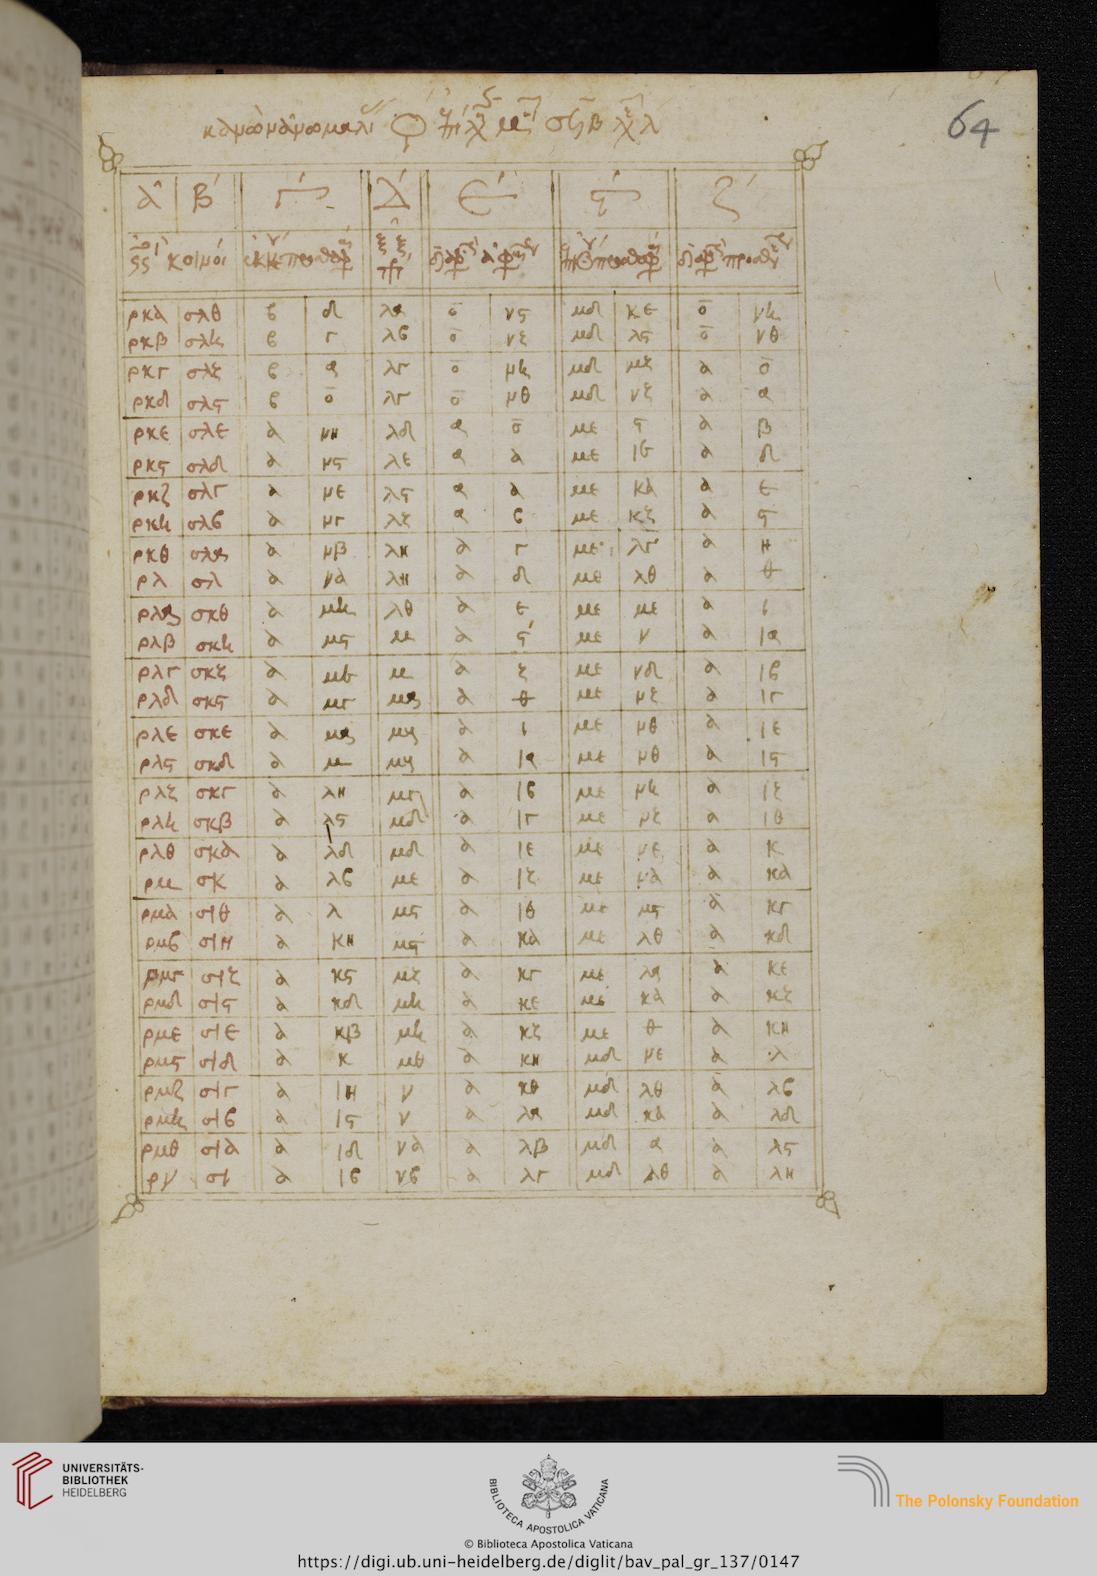 64
α β γ δ ε ϛ ζ
κοινοί
ρκα σλθ β δ λα ο νϛ μδ κε ο νη
ρκβ σλη β γ λβ ο νζ μδ λϛ ο νθ
ρκγ σλζ β α λγ ο μη μδ μζ α ο
ρκδ σλϛ β ο λγ ο μθ μδ νζ α α
ρκε σλε α νη λδ α ο με ϛ α β
ρκϛ σλδ α μϛ λε α α με ιβ α δ
ρκζ σλγ α με λϛ α α με κα α ε
ρκη σλβ α μγ λζ α β με κζ α ϛ
ρκθ σλα α μβ λη α γ με λγ α η
ρλ σλ α να λη α δ με λθ α θ
ρλα σκθ α μη λθ α ε με με α ι
ρλβ σκη α μϛ μ α ϛ με ν α ια
ρλγ σκζ α μβ μ α ζ με νδ α ιβ
ρλδ σκϛ α μγ μα α θ με μζ α ιγ
ρλε σκε α μα μη α ι με μθ α ιε
ρλϛ σκδ α μ μη α ια με μθ α ιϛ
ρλζ σκγ α λη μγ α ιβ με μη α ιζ
ρλη σκβ α λϛ μδ α ιγ με μζ α ιθ
ρλθ σκα α λδ μδ α ιε με νε α κ
ρμ σκ α λβ με α ιζ με να α κα
ρμα σιθ α λ μϛ α ιθ με μϛ α κγ
ρμβ σιη α κη μϛ α κα με λθ α κδ
ρμγ σιζ α κϛ μζ α κγ με λα α κε
ρμδ σιϛ α κδ μη α κε με κα α κζ
ρμε σιε α κβ μη α κζ με θ α κη
ρμϛ σιδ α κ μθ α κη μδ νε α λ
ρμζ σιγ α ιη ν α κθ μδ λθ α λβ
ρμη σιβ α ιϛ ν α λα μδ κα α λδ
ρμθ σια α ιδ να α λβ μδ α α λϛ
ρν σι α ιβ νβ α λγ μδ λθ α λη
UNIVERSITÄTS-
BIBLIOTHEK
HEIDELBERG
BIBLIOTECA APOSTOLICA VATICANA
The Polonsky Foundation
© Biblioteca Apostolica Vaticana
https://digi.ub.uni-heidelberg.de/diglit/bav_pal_gr_137/0147